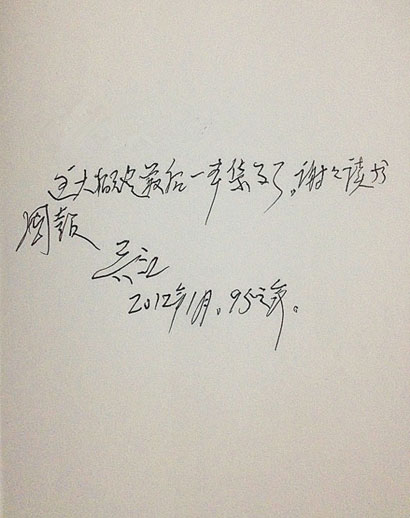 这大概是最后一本集子了。谢谢读书
周报
吴江
2012年1月。95之年。